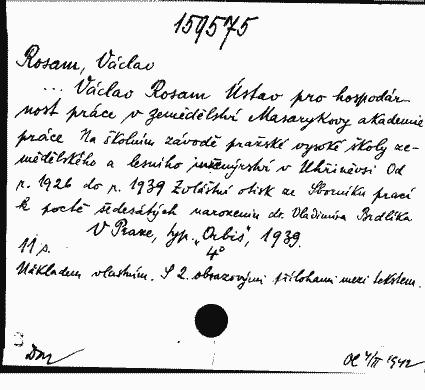 159575
Rosam, Václav
... Václav Rosam Ústav pro hospodár-
nost práce v zemědělství Masarykovy akademie
práce Na školním závodě pražské vysoké školy ze-
mědělského a lesního inženýrství v Uhříněvsi Od
r. 1926 do r. 1939 Zvláštní otisk ze Sborníku prací
k poctě šedesátých narozenin dr. Vladimíra Brdlíka
V Praze, typ. „Orbis", 1939.
11 s. 4°
Nákladem vlastním. S 2 obrazovými přílohami mezi tekstem.
Dar